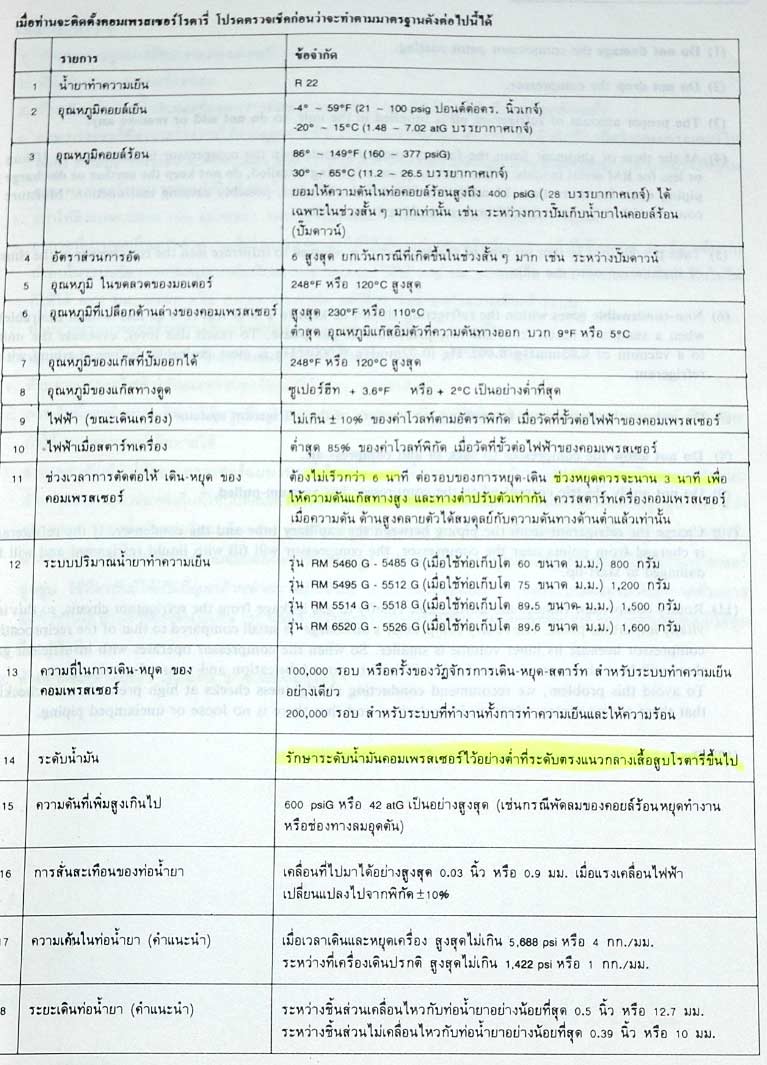 เมื่อท่านจะติดตั้งคอมเพรสเซอร์โรตารี่ โปรดตรวจเช็คก่อนว่าจะทำตามมาตรฐานดังต่อไปนี้ได้
รายการ ข้อจำกัด
1 น้ำยาทำความเย็น R 22
2 อุณหภูมิคอยล์เย็น -4° ~ 59°F (21 ~ 100 psig ปอนด์ต่อตร. นิ้วเกจ์)
-20° ~ 15°C (1.48 ~ 7.02 atG บรรยากาศเกจ์)
3 อุณหภูมิคอยล์ร้อน 86° ~ 149°F (160 ~ 377 psiG)
30° ~ 65°C (11.2 ~ 26.5 บรรยากาศเกจ์)
ยอมให้ความดันในท่อคอยล์ร้อนสูงถึง 400 psiG ( 28 บรรยากาศเกจ์) ได้
เฉพาะในช่วงสั้น ๆ มากเท่านั้น เช่น ระหว่างการปั๊มเก็บน้ำยาในคอยล์ร้อน
(ปั๊มดาวน์)
4 อัตราส่วนการอัด 6 สูงสุด ยกเว้นกรณีที่เกิดขึ้นในช่วงสั้น ๆ มาก เช่น ระหว่างปั๊มดาวน์
5 อุณหภูมิ ในขดลวดของมอเตอร์ 248°F หรือ 120°C สูงสุด
6 อุณหภูมิที่เปลือกด้านล่างของคอมเพรสเซอร์ สูงสุด 230°F หรือ 110°C
ต่ำสุด อุณหภูมิแก๊สอิ่มตัวที่ความดันทางออก บวก 9°F หรือ 5°C
7 อุณหภูมิของแก๊สที่ปั๊มออกได้ 248°F หรือ 120°C สูงสุด
8 อุณหภูมิของแก๊สทางดูด ซูเปอร์ฮีท + 3.6°F หรือ + 2°C เป็นอย่างต่ำที่สุด
9 ไฟฟ้า (ขณะเดินเครื่อง) ไม่เกิน ± 10% ของค่าโวลท์ตามอัตราพิกัด เมื่อวัดที่ขั้วต่อไฟฟ้าของคอมเพรสเซอร์
10 ไฟฟ้าเมื่อสตาร์ทเครื่อง ต่ำสุด 85% ของค่าโวลท์พิกัด เมื่อวัดที่ขั้วต่อไฟฟ้าของคอมเพรสเซอร์
11 ช่วงเวลาการตัดต่อให้ เดิน-หยุด ของ ต้องไม่เร็วกว่า 6 นาที ต่อรอบของการหยุด-เดิน ช่วงหยุดควรจะนาน 3 นาที เพื่อ
คอมเพรสเซอร์ ให้ความดันแก๊สทางสูง และทางต่ำปรับตัวเท่ากัน ควรสตาร์ทเครื่องคอมเพรสเซอร์
เมื่อความดัน ด้านสูงคลายตัวได้สมดุลย์กับความดันทางด้านต่ำแล้วเท่านั้น
12 ระบบปริมาณน้ำยาทำความเย็น รุ่น RM 5460 G - 5485 G (เมื่อใช้ท่อเก็บโต 60 ขนาด ม.ม.) 800 กรัม
รุ่น RM 5495 G - 5512 G (เมื่อใช้ท่อเก็บโต 75 ขนาด ม.ม.) 1,200 กรัม
รุ่น RM 5514 G - 5518 G (เมื่อใช้ท่อเก็บโต 89.5 ขนาด ม.ม.) 1,500 กรัม
รุ่น RM 6520 G - 5526 G (เมื่อใช้ท่อเก็บโต 89.6 ขนาด ม.ม.) 1,600 กรัม
13 ความถี่ในการเดิน-หยุด ของ 100,000 รอบ หรือครั้งของวัฏจักรการเดิน-หยุด-สตาร์ท สำหรับระบบทำความเย็น
คอมเพรสเซอร์ อย่างเดียว
200,000 รอบ สำหรับระบบที่ทำงานทั้งการทำความเย็นและให้ความร้อน
14 ระดับน้ำมัน รักษาระดับน้ำมันคอมเพรสเซอร์ไว้อย่างต่ำที่ระดับตรงแนวกลางเสื้อสูบโรตารี่ขึ้นไป
15 ความดันที่เพิ่มสูงเกินไป 600 psiG หรือ 42 atG เป็นอย่างสูงสุด (เช่นกรณีพัดลมของคอยล์ร้อนหยุดทำงาน
หรือช่องทางลมอุดตัน)
16 การสั่นสะเทือนของท่อน้ำยา เคลื่อนที่ไปมาได้อย่างสูงสุด 0.03 นิ้ว หรือ 0.9 มม. เมื่อแรงเคลื่อนไฟฟ้า
เปลี่ยนแปลงไปจากพิกัด ±10%
17 ความเค้นในท่อน้ำยา (คำแนะนำ) เมื่อเวลาเดินและหยุดเครื่อง สูงสุดไม่เกิน 5,688 psi หรือ 4 กก./มม.
ระหว่างที่เครื่องเดินปรกติ สูงสุดไม่เกิน 1,422 psi หรือ 1 กก./มม.
8 ระยะเดินท่อน้ำยา (คำแนะนำ) ระหว่างชิ้นส่วนเคลื่อนไหวกับท่อน้ำยาอย่างน้อยที่สุด 0.5 นิ้ว หรือ 12.7 มม.
ระหว่างชิ้นส่วนไม่เคลื่อนไหวกับท่อน้ำยาอย่างน้อยที่สุด 0.39 นิ้ว หรือ 10 มม.